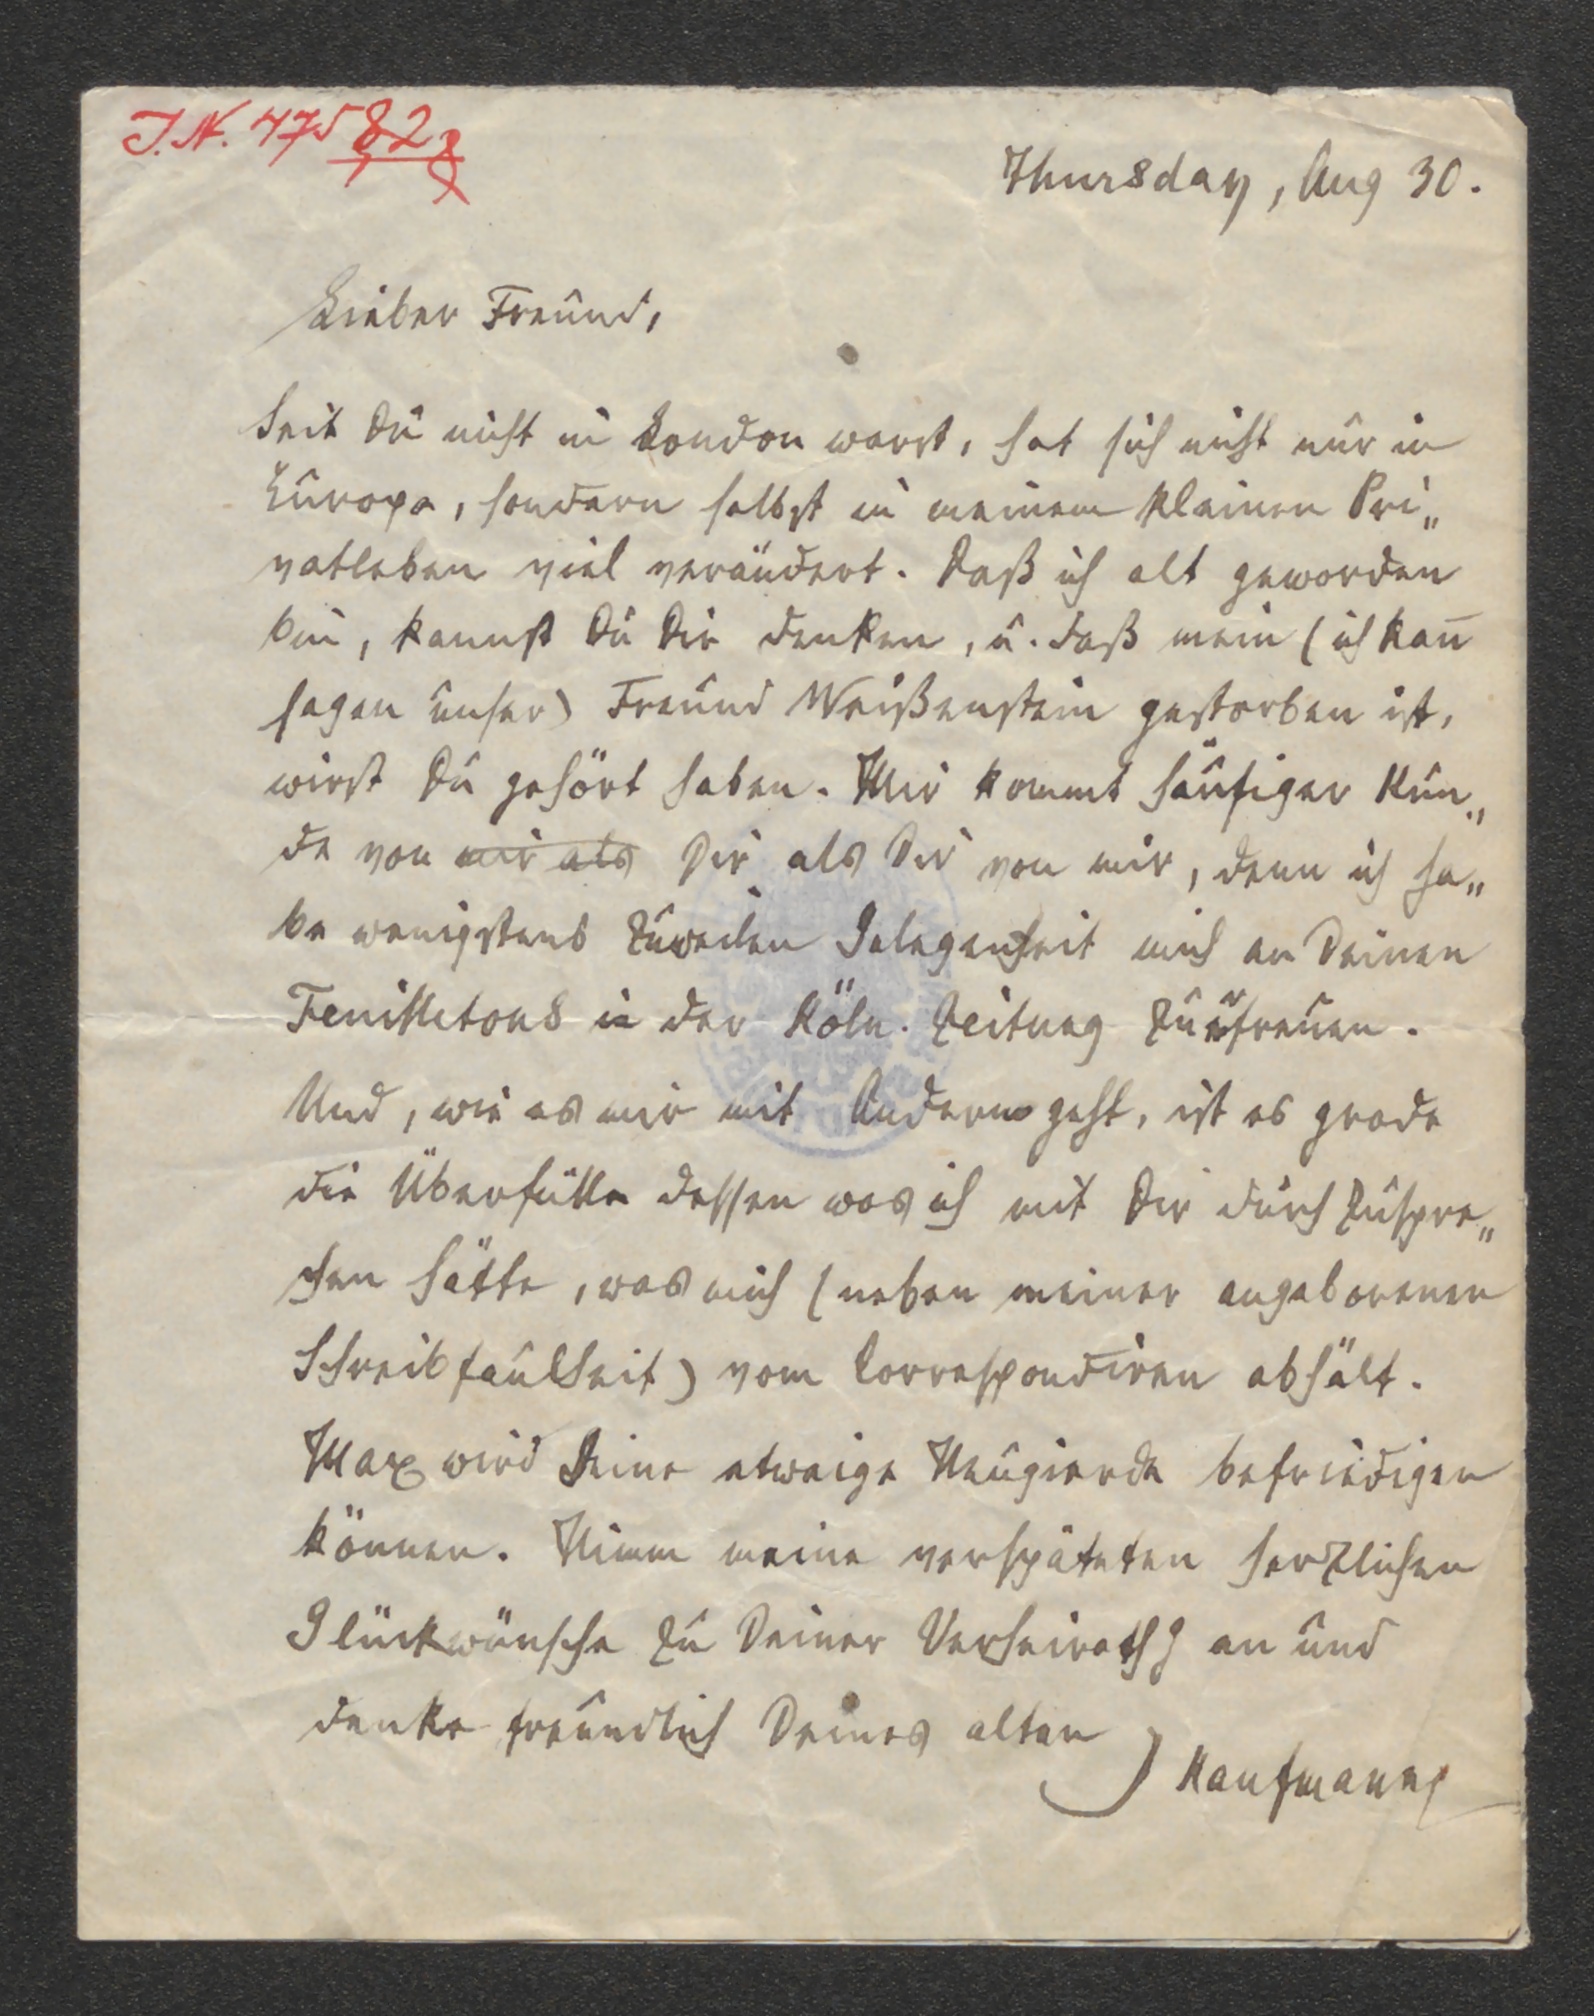 J.N. 47582
Thursday, Aug 30.
Lieber Freund,
Seit Du nicht in London warst, hat sich nicht nur in
Europa, sondern selbst in meinem kleinen Pri„
vatleben viel verändert. Daß ich alt geworden
bin, kannst Du Dir denken, u. daß mein (ich kan̄
sagen unser) Freund Weißenstein gestorben ist,
wirst Du gehört haben. Mir kommt häufiger Kun„
de von mir als Dir als Dir von mir, denn ich ha„
be wenigstens zuweilen Gelegenheit mich an Deinen
Feuilletons in der Köln. Zeitung zu erfreuen.
Und, wie es mir mit Andern geht, ist es grade
die Überfülle dessen was ich mit Dir durch zuspre„
chen hätte, was mich (neben meiner angeborenen
Schreibfaulheit) vom Correspondiren abhält.
Max wird Deine etwaige Neugierde befriedigen
können. Nimm meine verspäteten herzlichen
Glückwünsche zu Deiner Verheirathg an und
denke freundlich Deines alten
Kaufmann